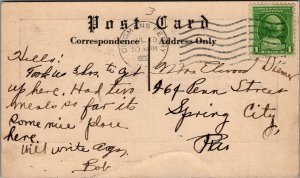 3
Post Card
Correspondence Address Only
10 AM
1932
1
Hello!
Took us 3 hrs to get
up here. Had two
meals so far its
some nice place
here.
Will write again,
Bob
Mrs Elwood Diener
464 Penn Street
Spring City,
Pa